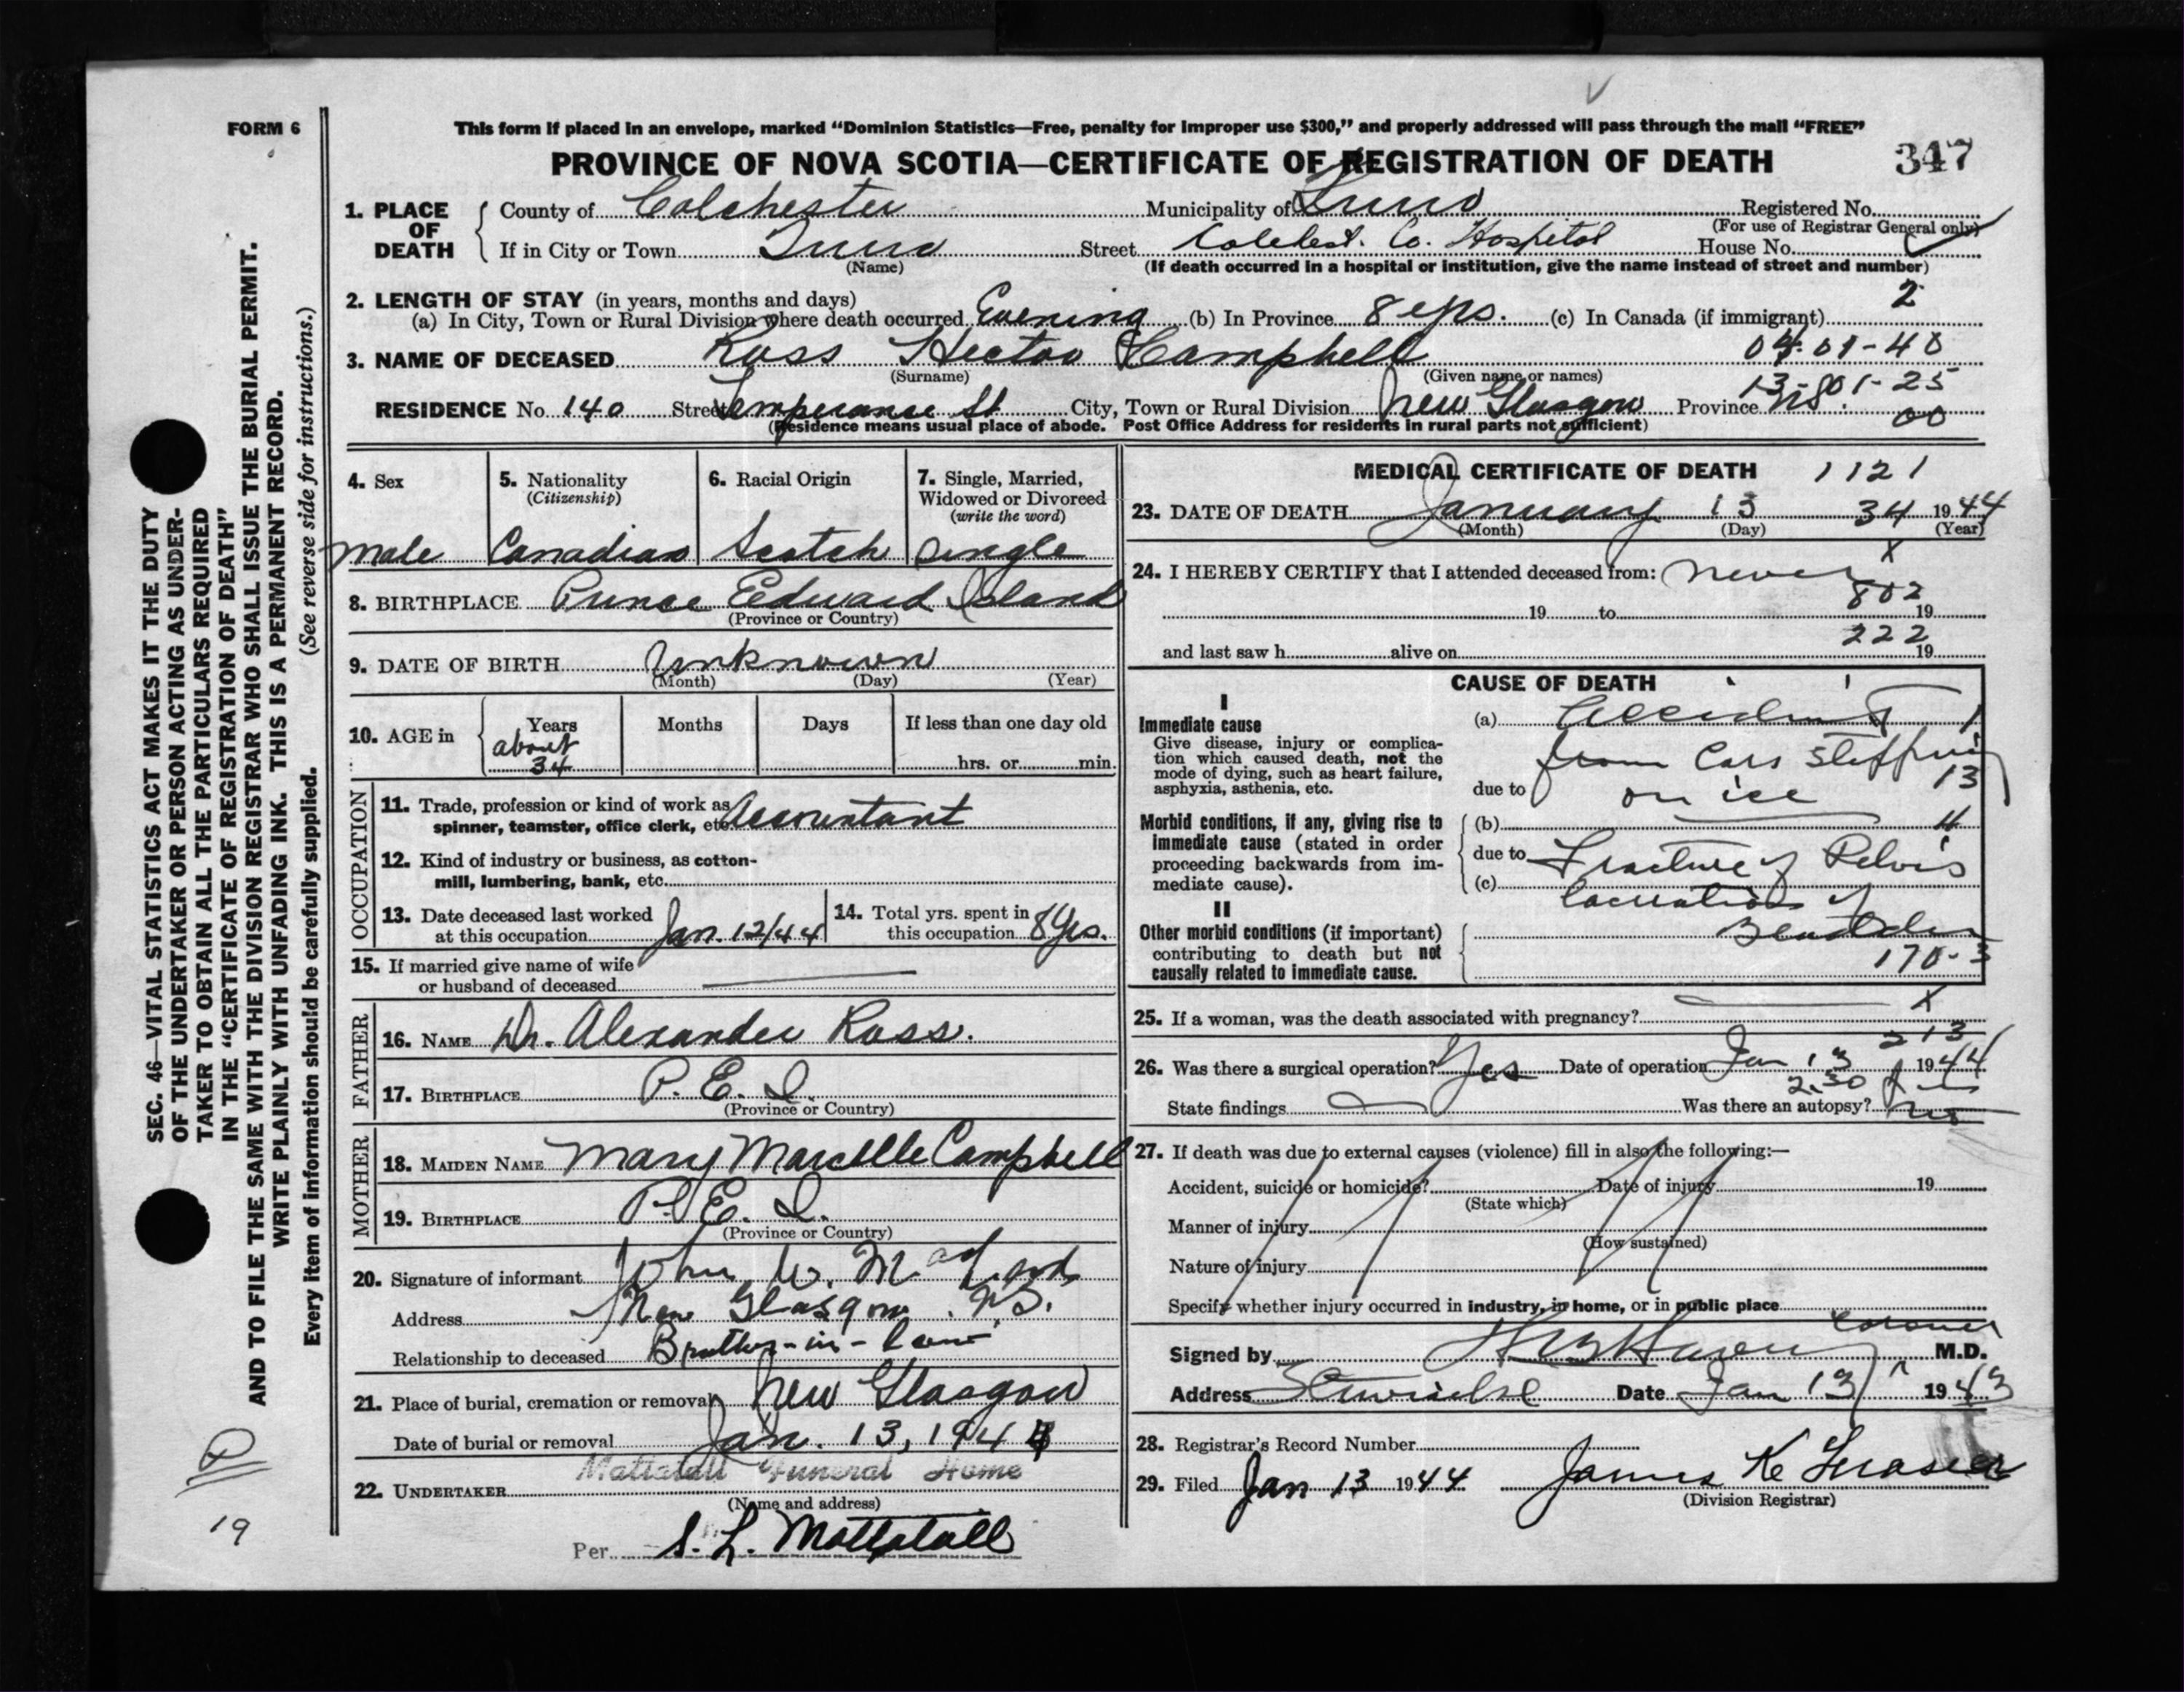 FORM 6
This form if placed in an envelope, marked “Dominion Statistics—Free, penalty for improper use $300,” and properly addressed will pass through the mail “FREE”
PROVINCE OF NOVA SCOTIA—CERTIFICATE OF REGISTRATION OF DEATH
347
1. PLACE OF DEATH
County of Colchester Municipality of Truro Registered No.
(For use of Registrar General only)
If in City or Town Truro Street Colchest. Co. Hospital House No.
(Name) (If death occurred in a hospital or institution, give the name instead of street and number)
2. LENGTH OF STAY (in years, months and days) 2
(a) In City, Town or Rural Division where death occurred Evening (b) In Province 8 yrs. (c) In Canada (if immigrant)
3. NAME OF DECEASED Ross Hector Campbell
(Surname) (Given name or names)
RESIDENCE No. 140 Street Temperance St City, Town or Rural Division New Glasgow Province NS.
00
(Residence means usual place of abode. Post Office Address for residents in rural parts not sufficient)
4. Sex
male
5. Nationality
(Citizenship)
Canadian
6. Racial Origin
Scotch
7. Single, Married,
Widowed or Divorced
(write the word)
Single
8. BIRTHPLACE Prince Edward Island
(Province or Country)
9. DATE OF BIRTH Unknown
(Month) (Day) (Year)
10. AGE in Years Months Days If less than one day old
about
34 hrs. or min.
OCCUPATION
11. Trade, profession or kind of work as
spinner, teamster, office clerk, etc. Accountant
12. Kind of industry or business, as cotton-
mill, lumbering, bank, etc.
13. Date deceased last worked
at this occupation Jan. 12/44
14. Total yrs. spent in
this occupation 8 yrs.
15. If married give name of wife
or husband of deceased
FATHER
16. NAME Dr. Alexander Ross.
17. BIRTHPLACE P. E. I.
(Province or Country)
MOTHER
18. MAIDEN NAME Mary Campbell
19. BIRTHPLACE P. E. I.
(Province or Country)
20. Signature of informant John W.
Address New Glasgow. N.S.
Relationship to deceased Brother-in-law
21. Place of burial, cremation or removal New Glasgow
Date of burial or removal Jan. 13, 1944
22. UNDERTAKER Mattatall Funeral Home
(Name and address)
Per S. L. Mattatall
MEDICAL CERTIFICATE OF DEATH 1121
23. DATE OF DEATH January 13 34 1944
(Month) (Day) (Year)
24. I HEREBY CERTIFY that I attended deceased from: never x
802
19 to 19
222
and last saw h alive on 19
CAUSE OF DEATH
I
Immediate cause
Give disease, injury or complica-
tion which caused death, not the
mode of dying, such as heart failure,
asphyxia, asthenia, etc.
(a) Accident
from Cars
13
due to on ice
Morbid conditions, if any, giving rise to
immediate cause (stated in order
proceeding backwards from im-
mediate cause).
(b)
due to Fracture of Pelvis
(c)
Laceration of
II
Other morbid conditions (if important)
contributing to death but not
causally related to immediate cause.
Bladder
170-3
25. If a woman, was the death associated with pregnancy? x
213
26. Was there a surgical operation? Yes Date of operation Jan 13 1944
2.30
State findings Was there an autopsy? no
27. If death was due to external causes (violence) fill in also the following:—
Accident, suicide or homicide? Date of injury 19
(State which)
Manner of injury
(How sustained)
Nature of injury
Specify whether injury occurred in industry, in home, or in public place
Coroner
Signed by M.D.
Address Stewiacke Date Jan 13 1943
28. Registrar's Record Number
29. Filed Jan 13 1944 James K Fraser
(Division Registrar)
SEC. 46—VITAL STATISTICS ACT MAKES IT THE DUTY
OF THE UNDERTAKER OR PERSON ACTING AS UNDER-
TAKER TO OBTAIN ALL THE PARTICULARS REQUIRED
IN THE “CERTIFICATE OF REGISTRATION OF DEATH”
AND TO FILE THE SAME WITH THE DIVISION REGISTRAR WHO SHALL ISSUE THE BURIAL PERMIT.
WRITE PLAINLY WITH UNFADING INK. THIS IS A PERMANENT RECORD.
Every item of information should be carefully supplied. (See reverse side for instructions.)
19